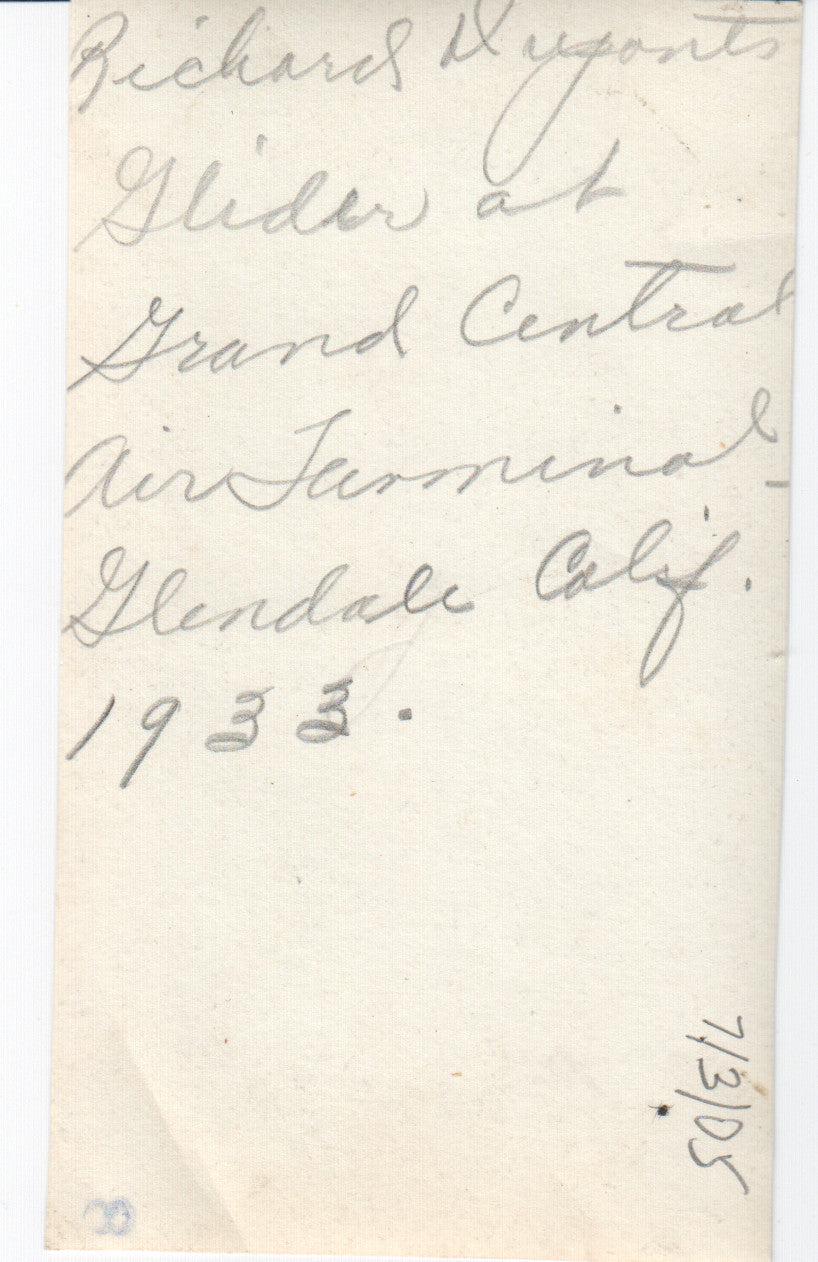 Richard Duponts
Glider at
Grand Central
Air Terminal -
Glendale Calif.
1933.
7/3/05